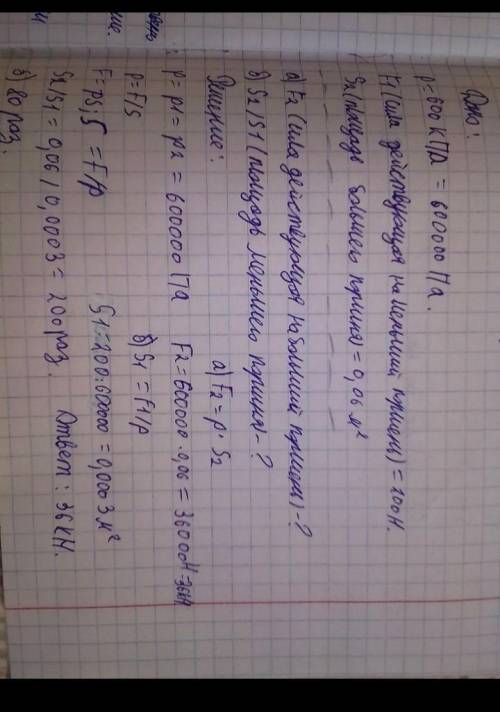 Дано:
p=600 кПа = 600000 Па.
F1 (сила действующая на меньший поршень) = 200Н.
S2 (площадь большего поршня) = 0,06 м²
а) F2 (сила действующая на больший поршень) - ?
б) S2/S1 (площадь меньшего поршня) - ?
Решение:
а) F2 = p· S2
p = p1 = p2 = 600000 Па F2 = 600000 · 0,06 = 36000Н = 36кН
p = F/S б) S1 = F1/p
F = pS, S = F/p S1 = 200:600000 = 0,0003 м²
S2/S1 = 0,06 / 0,0003 = 200 раз. Ответ: 36кН.
б) 80 раз.